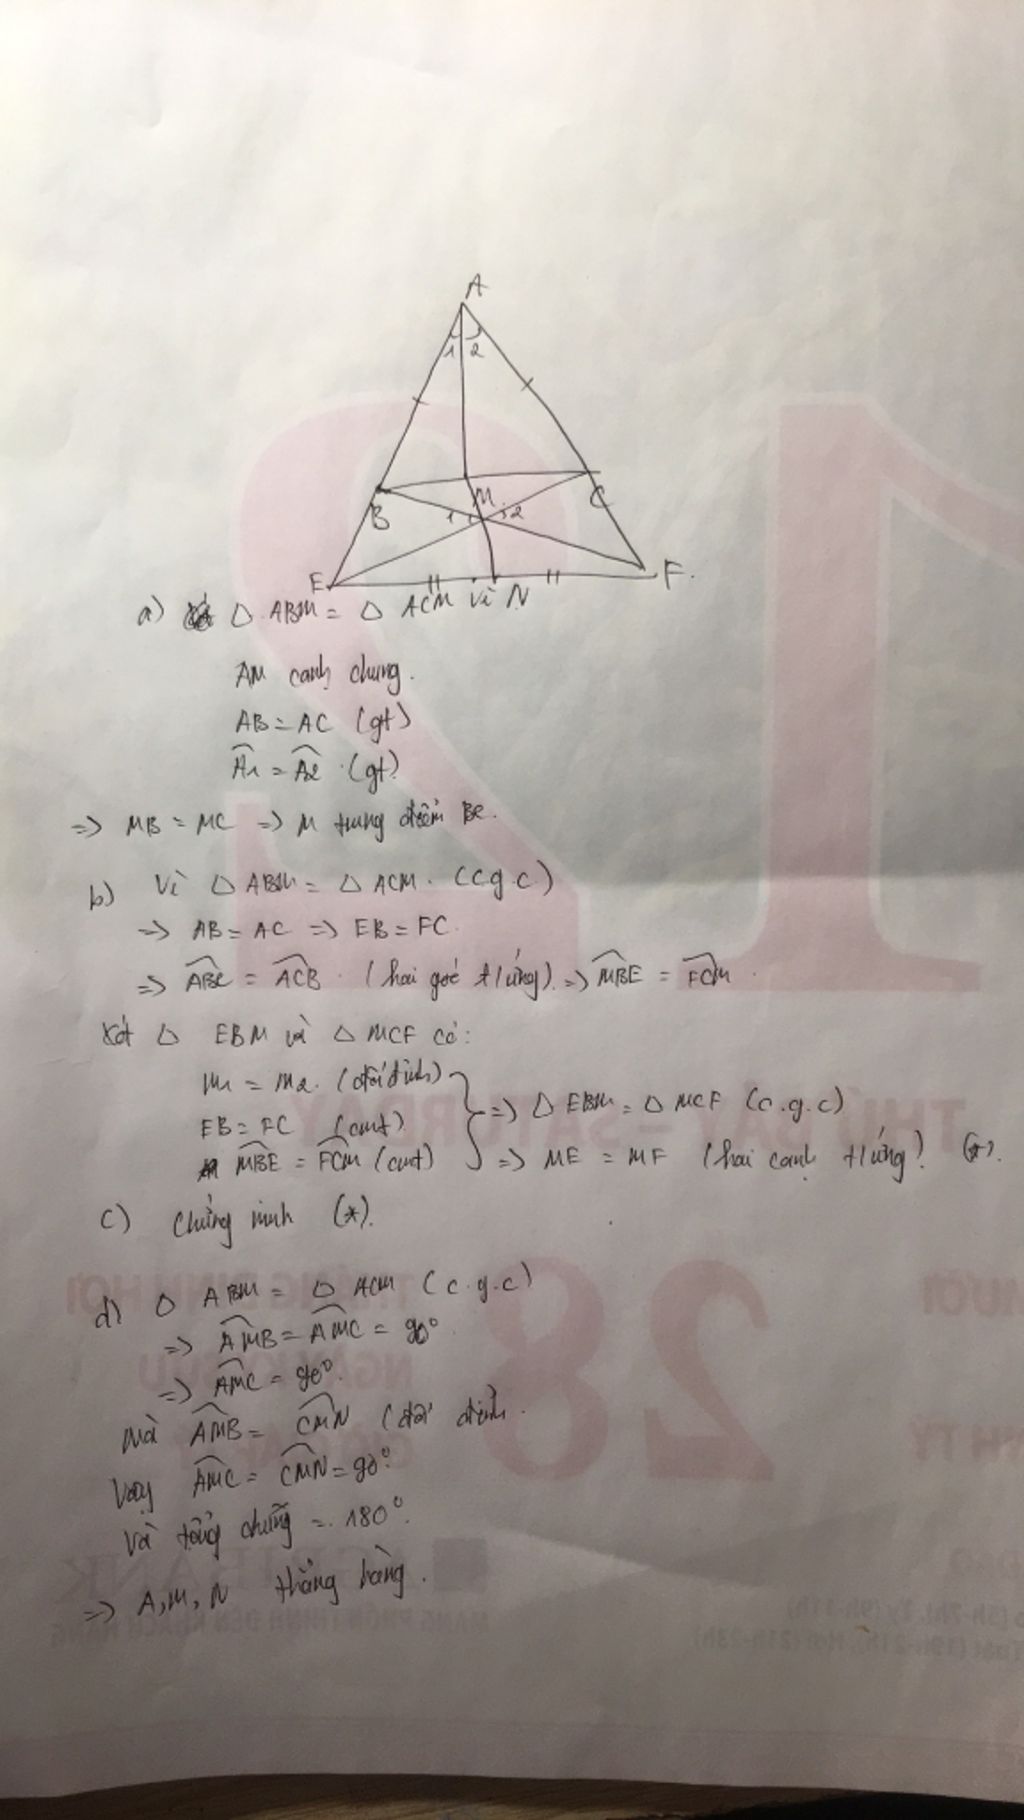 A
1 2
B M C
1 2
E N F.
a) △ ABM = △ ACM vì
AM cạnh chung.
AB = AC (gt)
Â1 = Â2 (gt)
=> MB = MC => M trung điểm BC.
b) Vì △ ABM = △ ACM. (c.g.c)
=> AB = AC => EB = FC.
=> ABC = ACB. (hai góc t/ứng). => MBE = FCM.
Xét △ EBM và △ MCF có:
M1 = M2. (đối đỉnh)
EB = FC (cmt)
MBE = FCM (cmt)
=> △ EBM = △ MCF (c.g.c)
=> ME = MF (hai cạnh t/ứng) (*).
c) Chứng minh (*).
d) △ ABM = △ ACM (c.g.c)
=> AMB = AMC = 90°
=> AMC = 90°.
mà AMB = CMN (đối đỉnh.
Vậy AMC = CMN = 90°
Và tổng chúng = 180°.
=> A, M, N thẳng hàng.
12
THỨ BẢY - SATURDAY
28